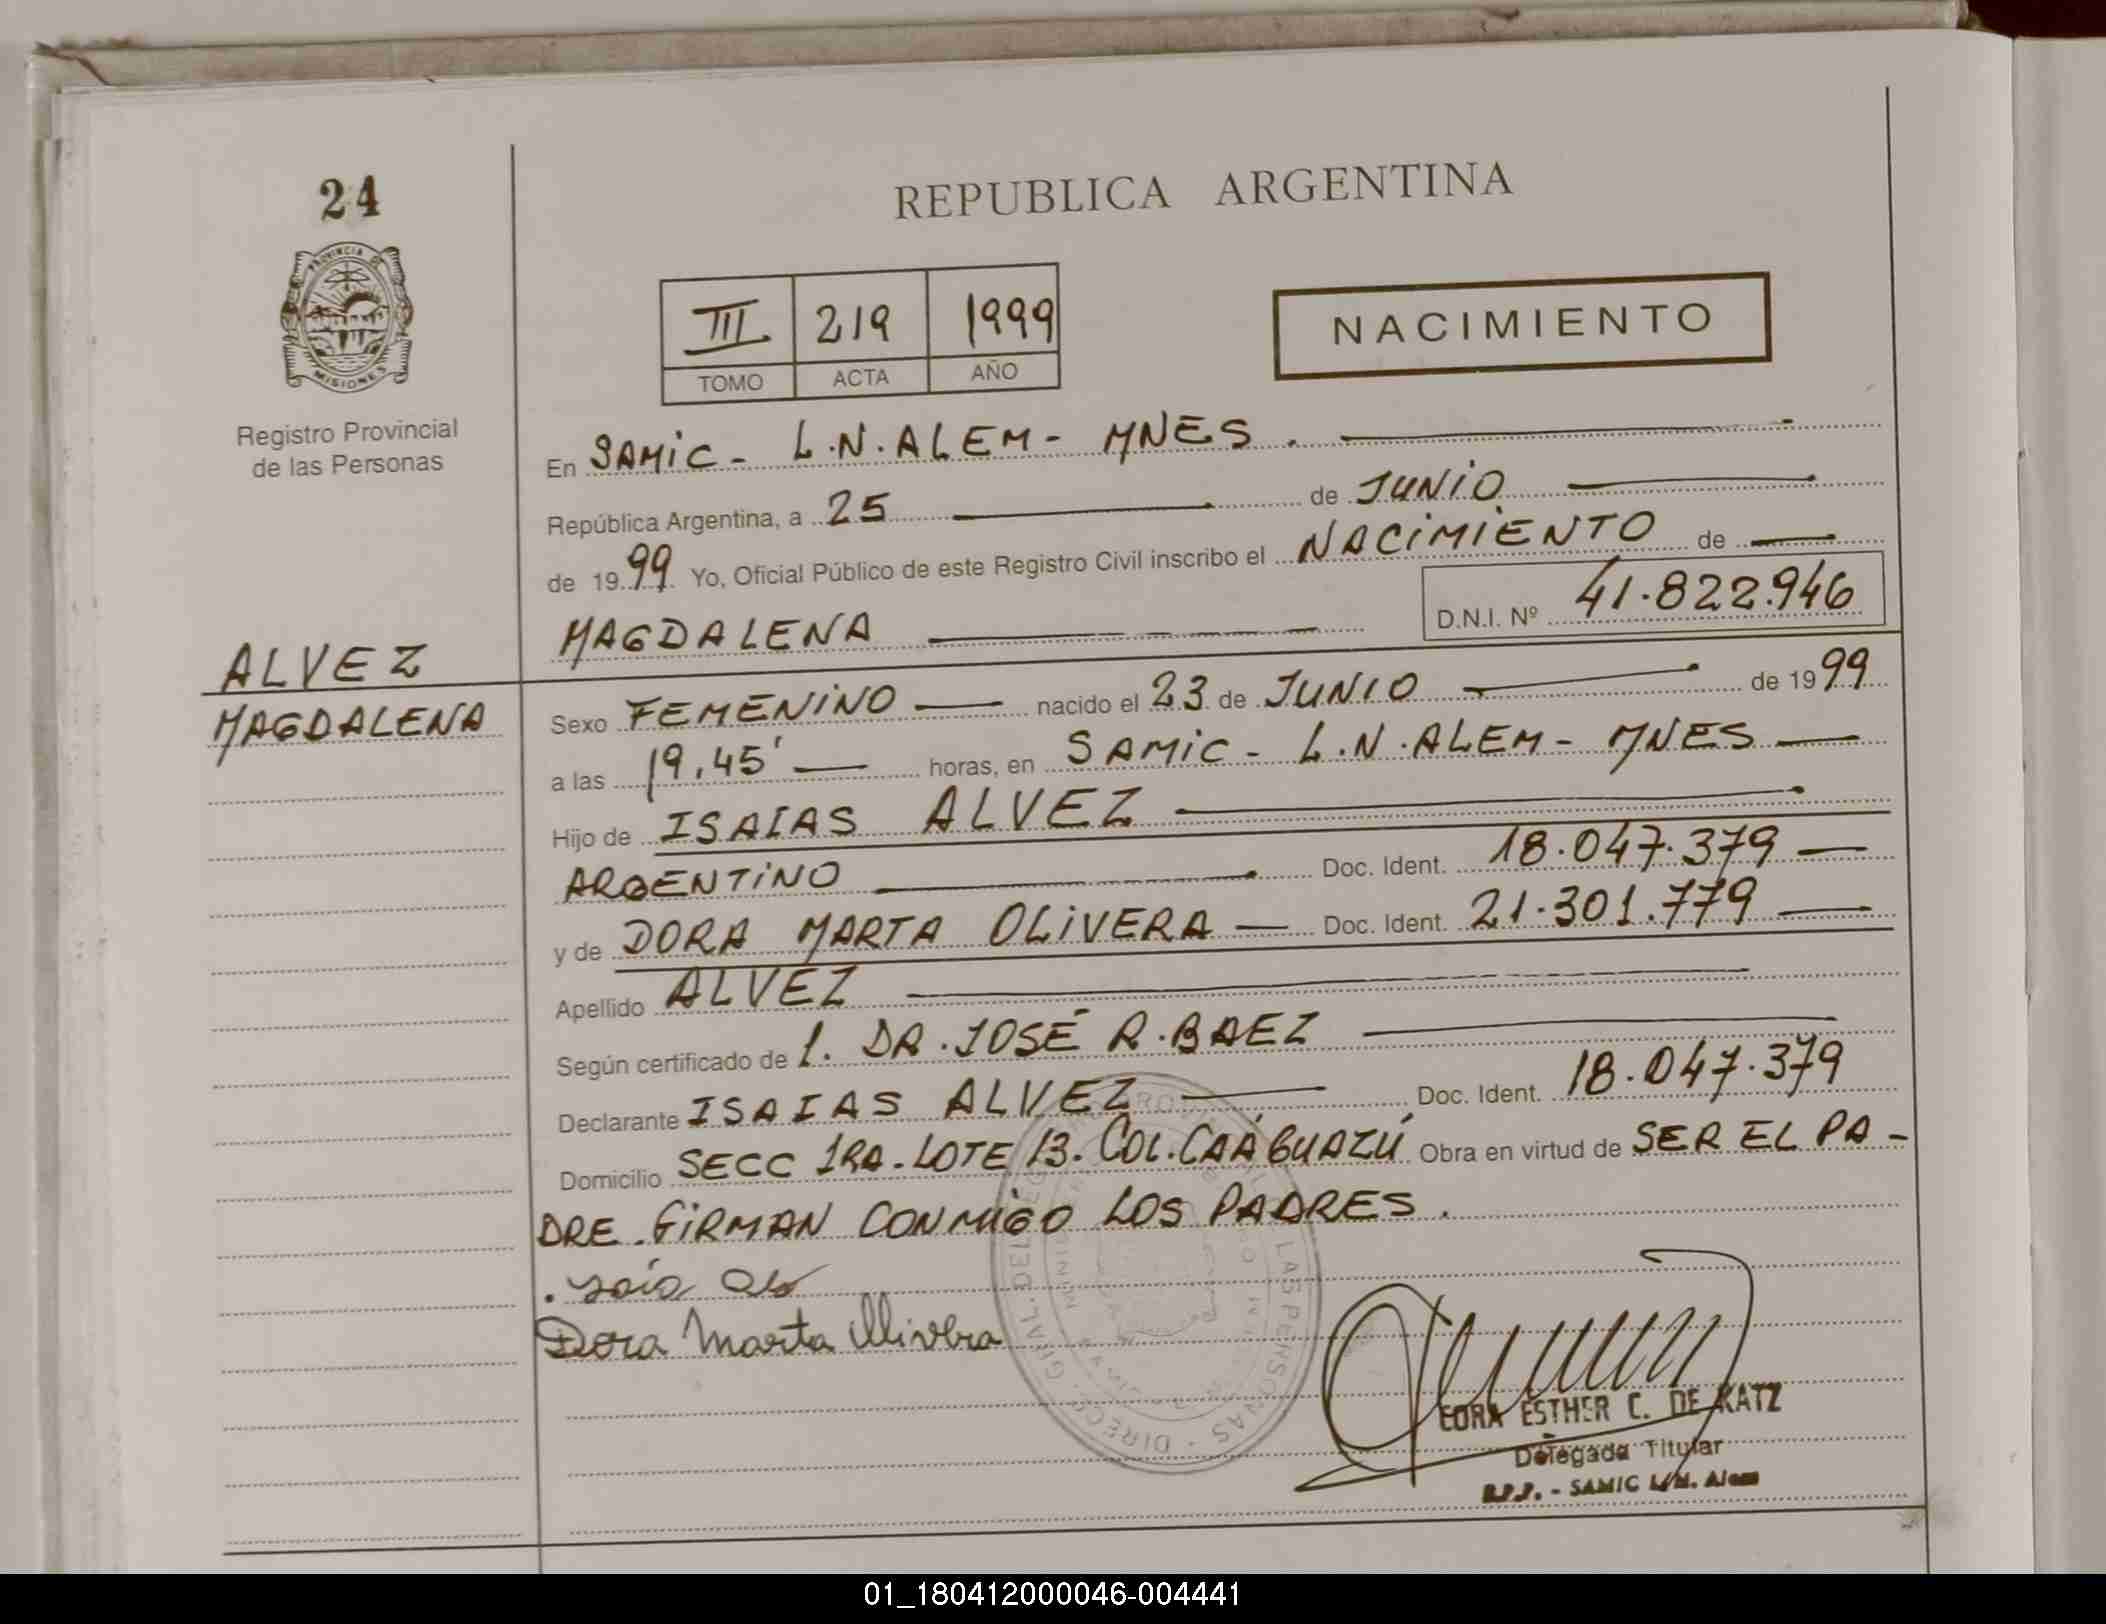 24
REPUBLICA ARGENTINA
PROVINCIA DE
MISIONES
Registro Provincial
de las Personas
III 219 1999
TOMO ACTA AÑO
NACIMIENTO
En SAMIC - L.N. ALEM - MNES.
República Argentina, a 25 de JUNIO
de 1999 Yo, Oficial Público de este Registro Civil inscribo el NACIMIENTO de
MAGDALENA D.N.I. Nº 41.822.946
ALVEZ
MAGDALENA
Sexo FEMENINO nacido el 23 de JUNIO de 1999
a las 19,45' horas, en SAMIC - L.N. ALEM - MNES
Hijo de ISAIAS ALVEZ
ARGENTINO Doc. Ident. 18.047.379
y de DORA MARTA OLIVERA Doc. Ident. 21.301.779
Apellido ALVEZ
Según certificado de 1. DR. JOSÉ R. BAEZ
Declarante ISAIAS ALVEZ Doc. Ident. 18.047.379
Domicilio SECC 1RA. LOTE 13. COL. CAÁGUAZÚ Obra en virtud de SER EL PA-
DRE. FIRMAN CONMIGO LOS PADRES.
Dora Marta Olivera
LAS PERSONAS - DIREC. GRAL. DEL
ESTHER C. DE KATZ
Delegada Titular
R.P.P. - SAMIC L.N. Alem
01_180412000046-004441